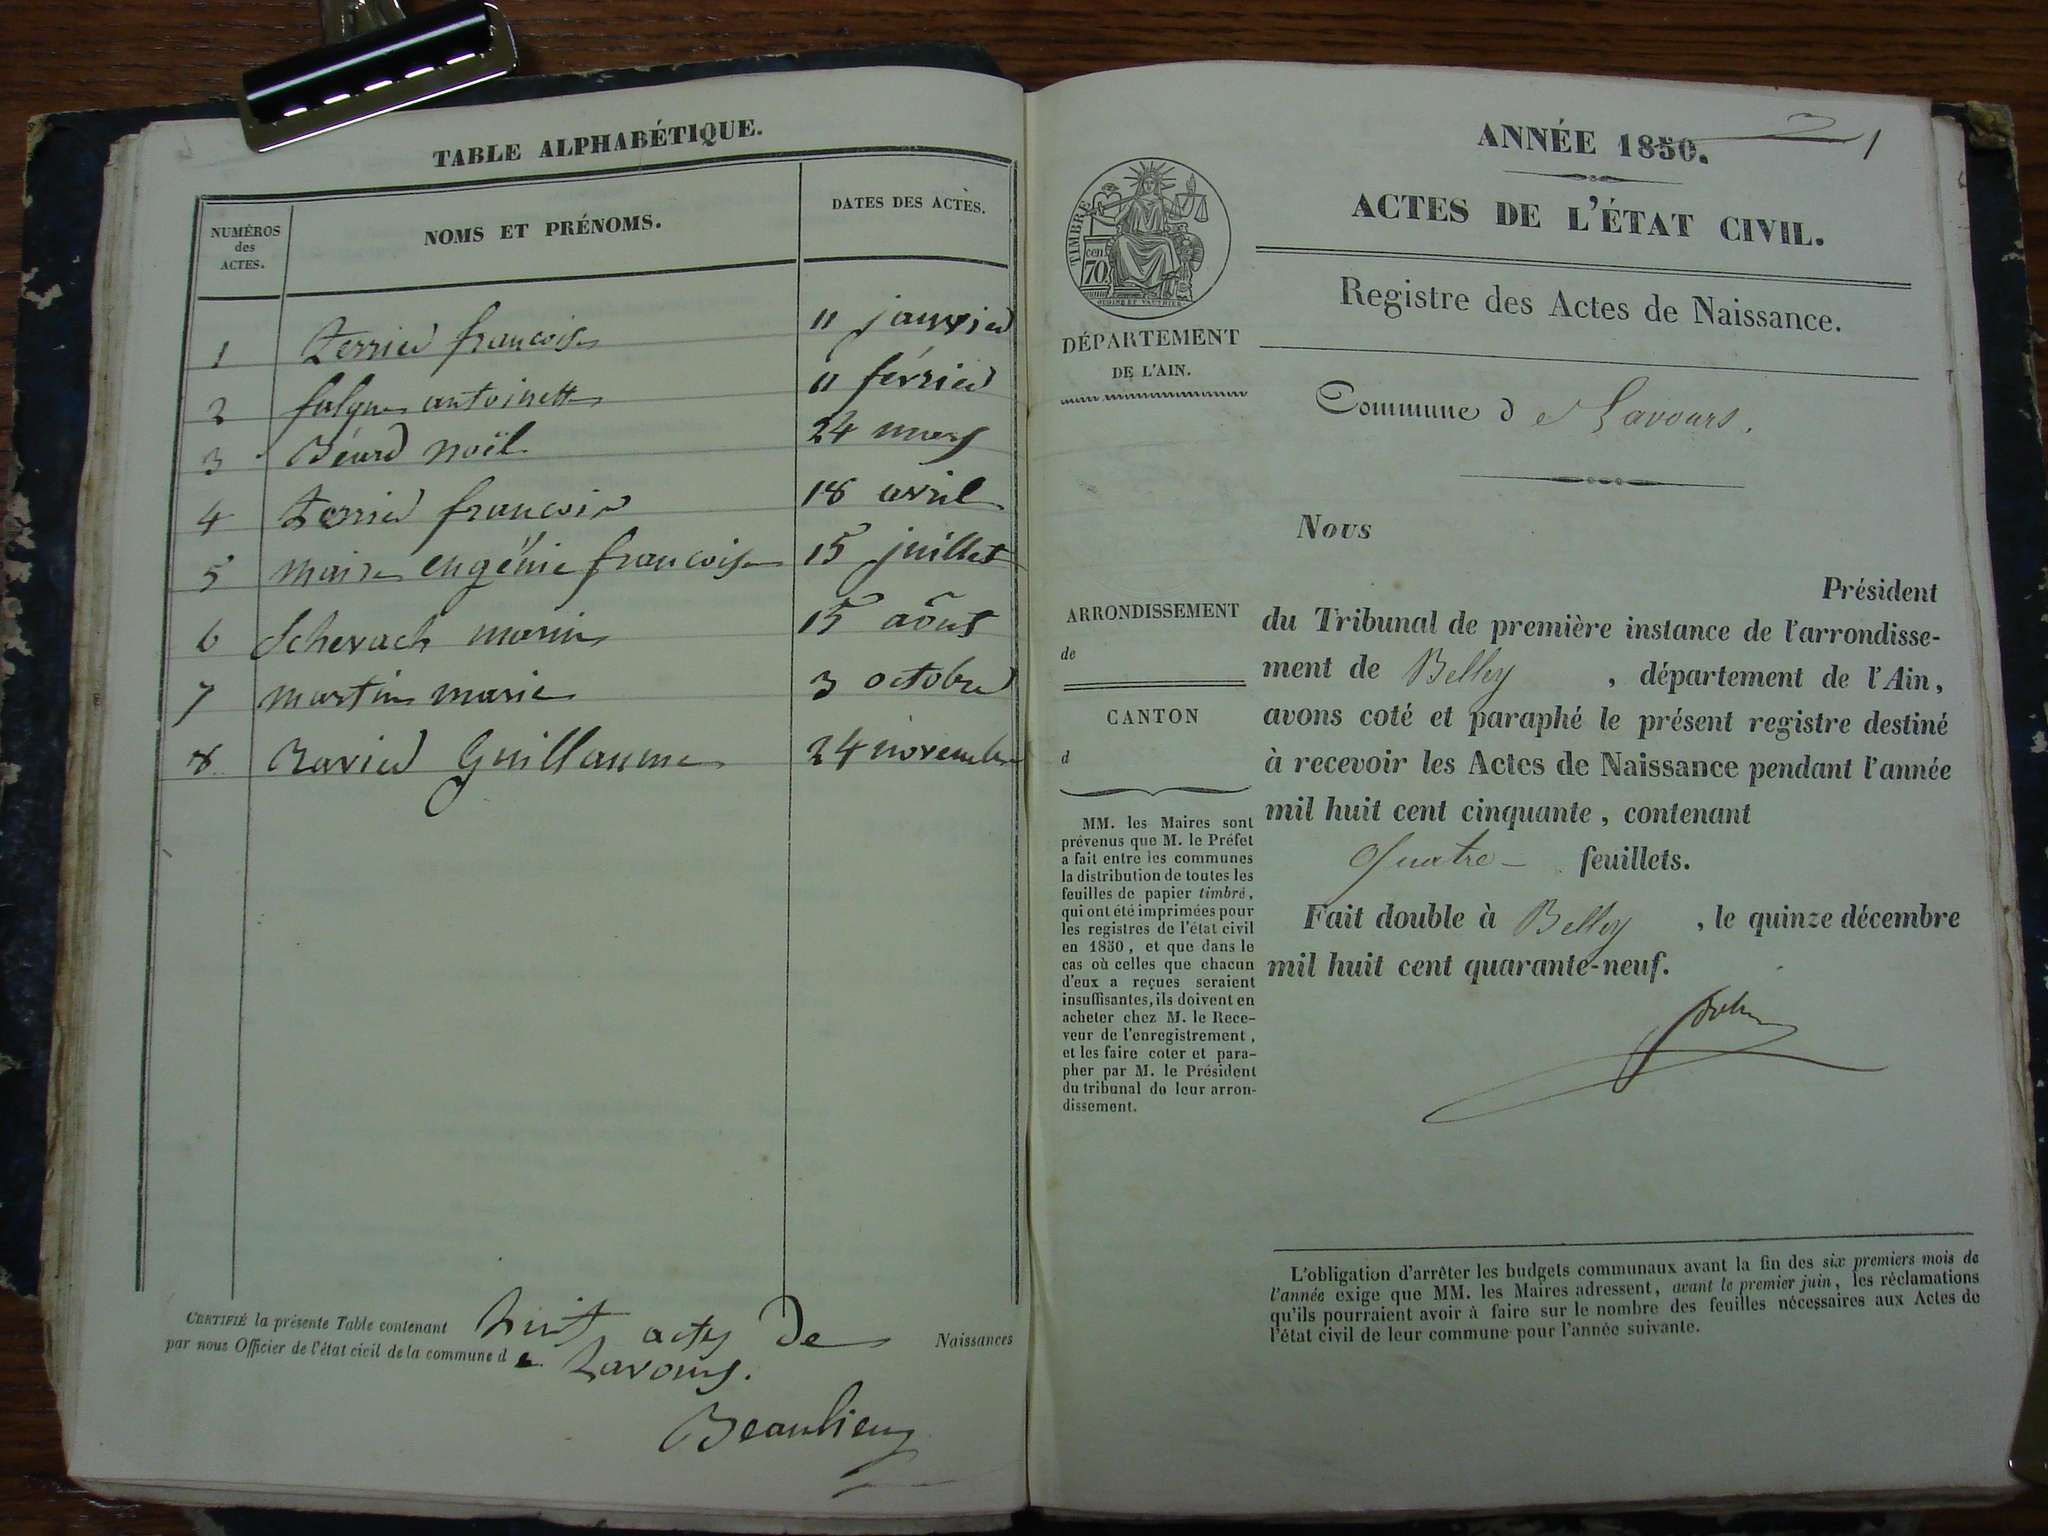 TABLE ALPHABÉTIQUE.
NUMÉROS
des
ACTES.
NOMS ET PRÉNOMS.
DATES DES ACTES.
1 Terrier françoise 11 janvier
2 antoinette 11 février
3 Béard noël 24 mars
4 terrier françois 18 avril
5 maire eugénie françoise 15 juillet
6 15 août
7 martin marie 3 octobre
8 Ravier Guillaume 24 novembre
CERTIFIÉ la présente Table contenant huit actes de Naissances
par nous Officier de l'état civil de la commune de Lavours.
Beaulieu
1
ANNÉE 1850.
ACTES DE L'ÉTAT CIVIL.
Registre des Actes de Naissance.
TIMBRE
cen.
70
DÉPARTEMENT
DE L'AIN.
Commune de Lavours.
Nous
Président
du Tribunal de première instance de l'arrondisse-
ment de Belley, département de l'Ain,
avons coté et paraphé le présent registre destiné
à recevoir les Actes de Naissance pendant l'année
mil huit cent cinquante, contenant
Quatre feuillets.
Fait double à Belley, le quinze décembre
mil huit cent quarante-neuf.
ARRONDISSEMENT
de
CANTON
d
MM. les Maires sont
prévenus que M. le Préfet
a fait entre les communes
la distribution de toutes les
feuilles de papier timbré,
qui ont été imprimées pour
les registres de l'état civil
en 1850, et que dans le
cas où celles que chacun
d'eux a reçues seraient
insuffisantes, ils doivent en
acheter chez M. le Rece-
veur de l'enregistrement,
et les faire coter et para-
pher par M. le Président
du tribunal de leur arron-
dissement.
L'obligation d'arrêter les budgets communaux avant la fin des six premiers mois de
l'année exige que MM. les Maires adressent, avant le premier juin, les réclamations
qu'ils pourraient avoir à faire sur le nombre des feuilles nécessaires aux Actes de
l'état civil de leur commune pour l'année suivante.